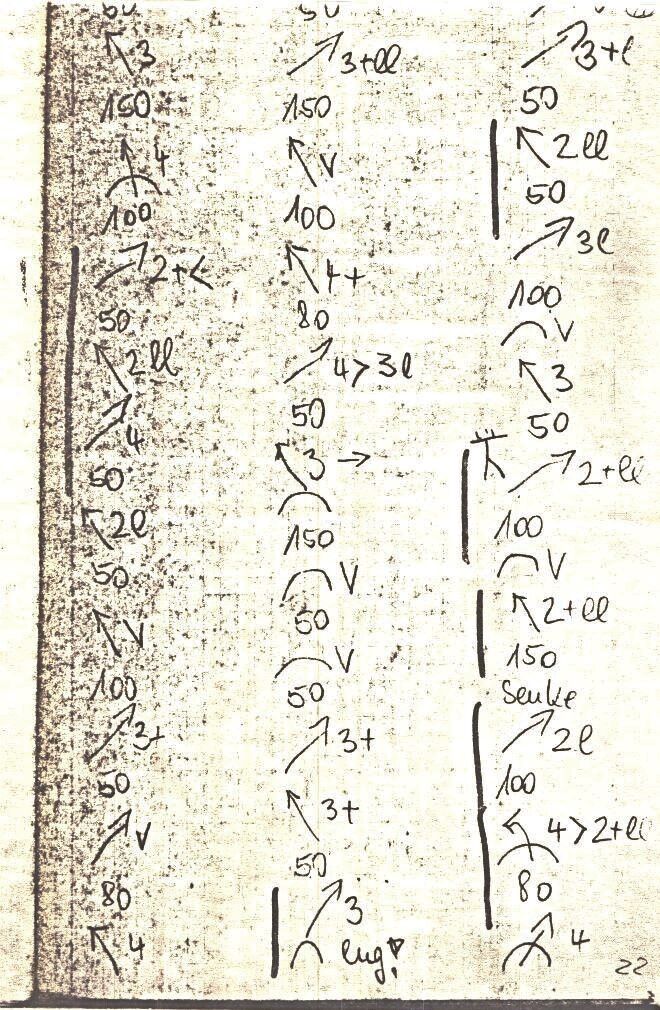 50
↖ 3
150
↖ 4
100
↗ 2+<
50
↖ 2ll
↗ 4
50
↖ 2l
50
↖ V
100
↗ 3+
50
↗ V
80
↖ 4
50
↗ 3+ll
150
↖ V
100
↖ 4+
80
↗ 4>3l
50
↖ 3 →
150
⌒ V
50
⌒ V
50
↗ 3+
↖ 3+
50
↗ 3
eng!
↗ 3+l
50
↖ 2ll
50
↗ 3l
100
⌒ V
↖ 3
50
↗ 2+ll
100
⌒ V
↖ 2+ll
150
Senke
↗ 2l
100
↖ 4>2+ll
80
↗ 4
22